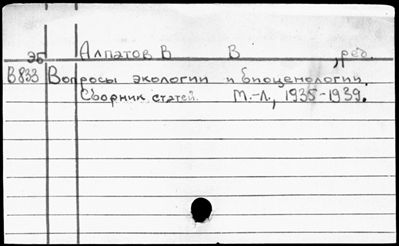 Эб Алпатов В В , ред.
В833 Вопросы экологии и биоценологии.
Сборник статей. М.-Л., 1935-1939.